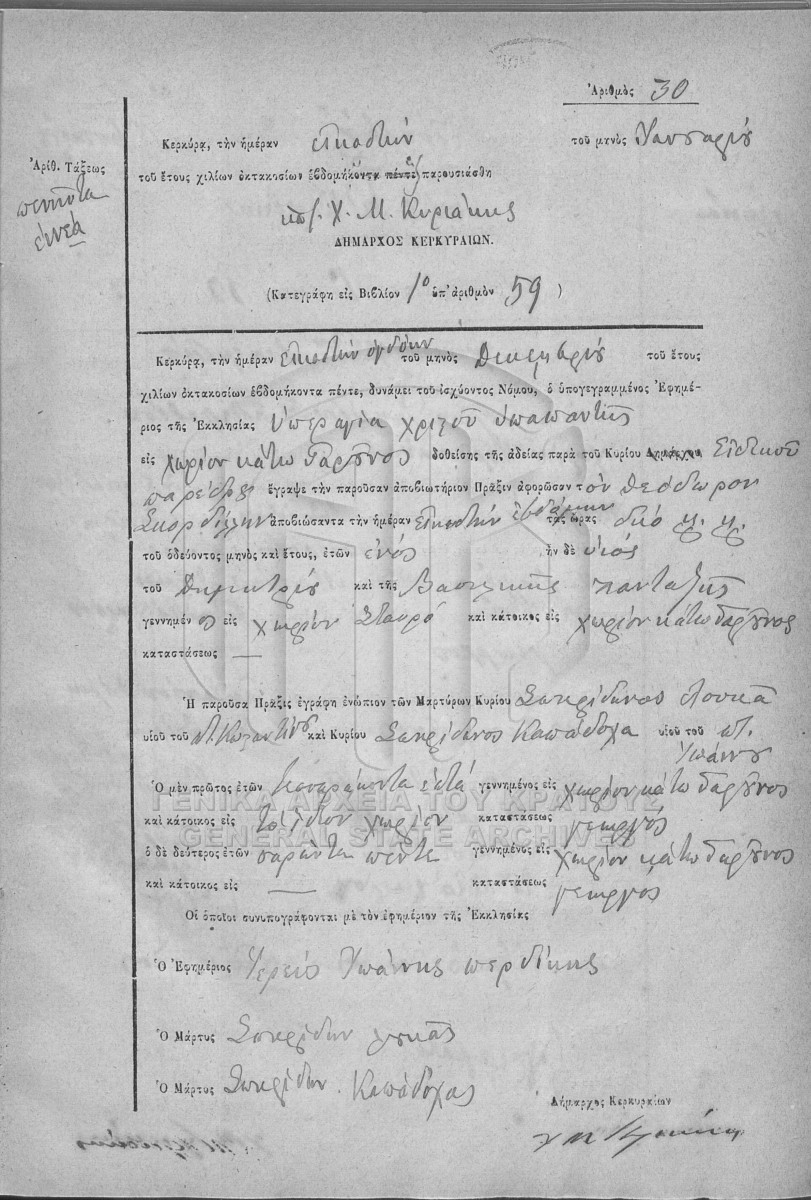 Ἀριθμὸς 30
Κερκύρᾳ, τὴν ἡμέραν εἰκοστὴν τοῦ μηνὸς Ἰανουαρίου
Ἀριθ. Τάξεως
πεννῆντα
ἐννέα
τοῦ ἔτους χιλίων ὀκτακοσίων ἑβδομήκοντα πέντε παρουσιάσθη
Χ. Μ. Κυριάκης
ΔΗΜΑΡΧΟΣ ΚΕΡΚΥΡΑΙΩΝ.
(Κατεγράφη εἰς Βιβλίον 1ο ὑπ' ἀριθμὸν 59)
Κερκύρᾳ, τὴν ἡμέραν εἰκοστὴν ὀγδόην τοῦ μηνὸς Δεκεμβρίου τοῦ ἔτους
χιλίων ὀκτακοσίων ἑβδομήκοντα πέντε, δυνάμει τοῦ ἰσχύοντος Νόμου, ὁ ὑπογεγραμμένος Ἐφημέ-
ριος τῆς Ἐκκλησίας Ὑπεραγία χριζοῦ ὑπαπαντῆς
εἰς χωρίον κάτω Γαροῦνος δοθείσης τῆς ἀδείας παρὰ τοῦ Κυρίου Δημάρχου Εἰδικοῦ
παρέδρου ἔγραψε τὴν παροῦσαν ἀποβιωτήριον Πρᾶξιν ἀφορῶσαν τὸν Θεόδωρον
Σκορδίλλην ἀποβιώσαντα τὴν ἡμέραν εἰκοστὴν ἑβδόμην τὰς ὥρας δύο μ. μ.
τοῦ ὁδεύοντος μηνὸς καὶ ἔτους, ἐτῶν ἑνός ἦν δὲ υἱός
τοῦ Δημητρίου καὶ τῆς Βασιλικῆς πανταζῆς
γεννημέν ος εἰς χωρίον Σταυρό καὶ κάτοικος εἰς χωρίον κάτω Γαροῦνος
καταστάσεως —
Ἡ παροῦσα Πρᾶξις ἐγράφη ἐνώπιον τῶν Μαρτύρων Κυρίου Σπυρίδωνος Λουκᾶ
υἱοῦ τοῦ Κοζαντίνου καὶ Κυρίου Σπυρίδωνος Καπάδοχα υἱοῦ τοῦ
Ἰωάννου
Ὁ μὲν πρῶτος ἐτῶν σαναράκοντα ἑπτά γεννημένος εἰς χωρίον κάτω Γαροῦνος
καὶ κάτοικος εἰς τὸ ἴδιον χωρίον καταστάσεως γεωργός
ὁ δὲ δεύτερος ἐτῶν σαράντα πέντε γεννημένος εἰς χωρίον κάτω Γαροῦνος
καὶ κάτοικος εἰς — καταστάσεως γεωργός
Οἱ ὁποῖοι συνυπογράφονται μὲ τὸν ἐφημέριον τῆς Ἐκκλησίας
Ὁ Ἐφημέριος Ἱερεύς Ἰωάννης περδίκης
Ὁ Μάρτυς Σπυρίδων λουκᾶς
Ὁ Μάρτυς Σπυρίδων Καπάδοχας
Δήμαρχος Κερκυραίων
ΓΕΝΙΚΑ ΑΡΧΕΙΑ ΤΟΥ ΚΡΑΤΟΥΣ
GENERAL STATE ARCHIVES